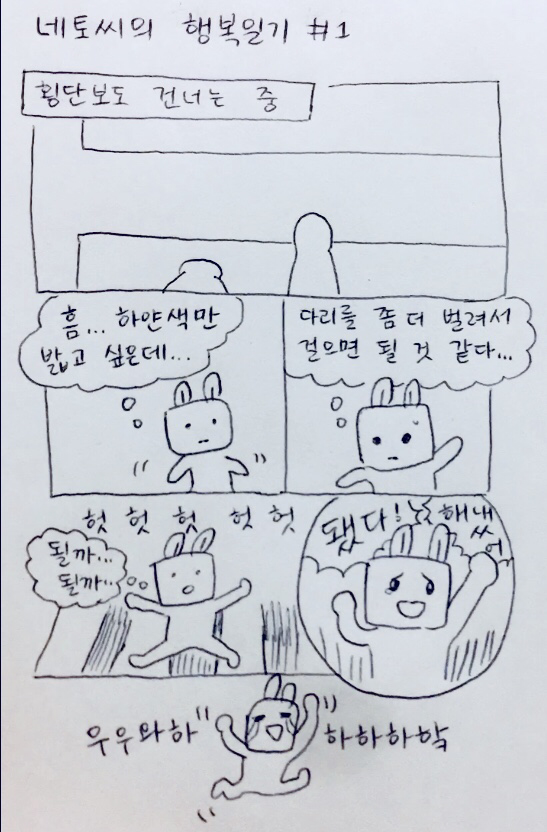 네토씨의 행복일기 #1
횡단보도 건너는 중
흠... 하얀색만
밟고 싶은데...
다리를 좀 더 벌려서
걸으면 될 것 같다...
헛 헛 헛 헛 헛
될까...
될까...
됐다!
해냈
쓰
어
우우와하
하하하학